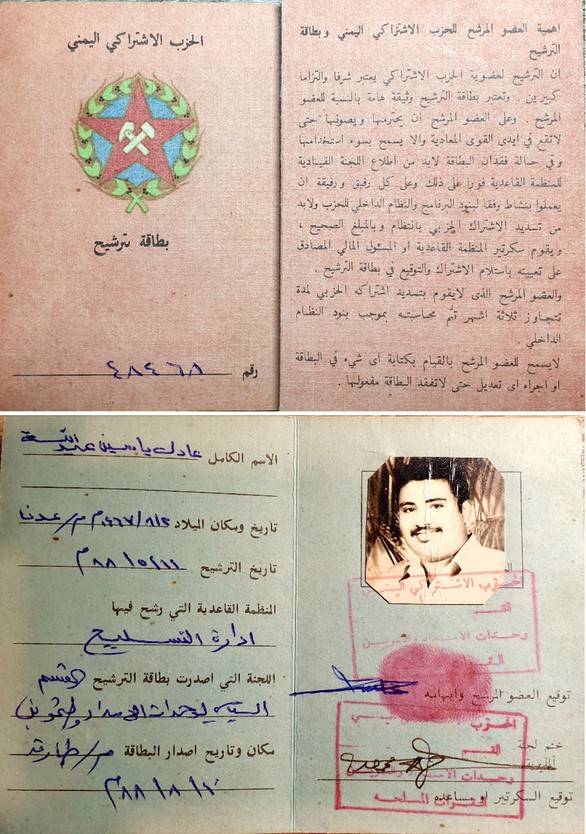 الحزب الاشتراكي اليمني
بطاقة ترشيح
رقم ٤٨٤٦٨
اهمية العضو المرشح للحزب الاشتراكي اليمني وبطاقة
الترشيح
ان الترشيح لعضوية الحزب الاشتراكي يعتبر شرفا والتزاما
كبيرين . وتعتبر بطاقة الترشيح وثيقة هامة بالنسبة للعضو
المرشح . وعلى العضو المرشح ان يحترمها ويصونها حتى
لاتقع في ايدى القوى المعادية والا يسمح بسوء استخدامها
وفي حالة فقدان البطاقة لابد من اطلاع اللجنة القيادية
للمنظمة القاعدية فورا على ذلك وعلى كل رفيق ورفيقة ان
يعملوا بنشاط وفقا لبنود البرنامج والنظام الداخلي للحزب ولابد
من تسديد الاشتراك الحزبي بانتظام وبالمبلغ الصحيح ،
ويقوم سكرتير المنظمة القاعدية او المسئول المالي المصادق
على تعيينه باستلام الاشتراك والتوقيع في بطاقة الترشيح .
والعضو المرشح الذى لايقوم بتسديد اشتراكه الحزبي لمدة
تتجاوز ثلاثة اشهر تتم محاسبته بموجب بنود النظام
الداخلي .
لايسمح للعضو المرشح بالقيام بكتابة اى شيء في البطاقة
او اجراء اى تعديل حتى لاتفقد البطاقة مفعولها .
الاسم الكامل عادل ياسين
تاريخ ومكان الميلاد م/عدن
تاريخ الترشيح ٨٨م
المنظمة القاعدية التي رشح فيها
ادارة التسليح
اللجنة التي اصدرت بطاقة الترشيح القسم
السياسي لوحدات الامداد والتموين
مكان وتاريخ اصدار البطاقة م/طارق
٨٨/٨/١٠م
الحزب الاشتراكي اليمني
القسم
وحدات الامداد
توقيع العضو المرشح وابهامه
الحزب
ختم لجنة
القسم
وحدات الامداد
توقيع السكرتير او مساعده
القوات المسلحه